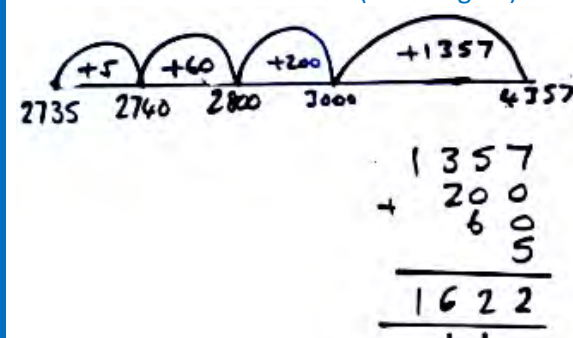 +5 +60 +200 +1357
2735 2740 2800 3000 4357
1 3 5 7
+ 2 0 0
6 0
5
1 6 2 2
1 1